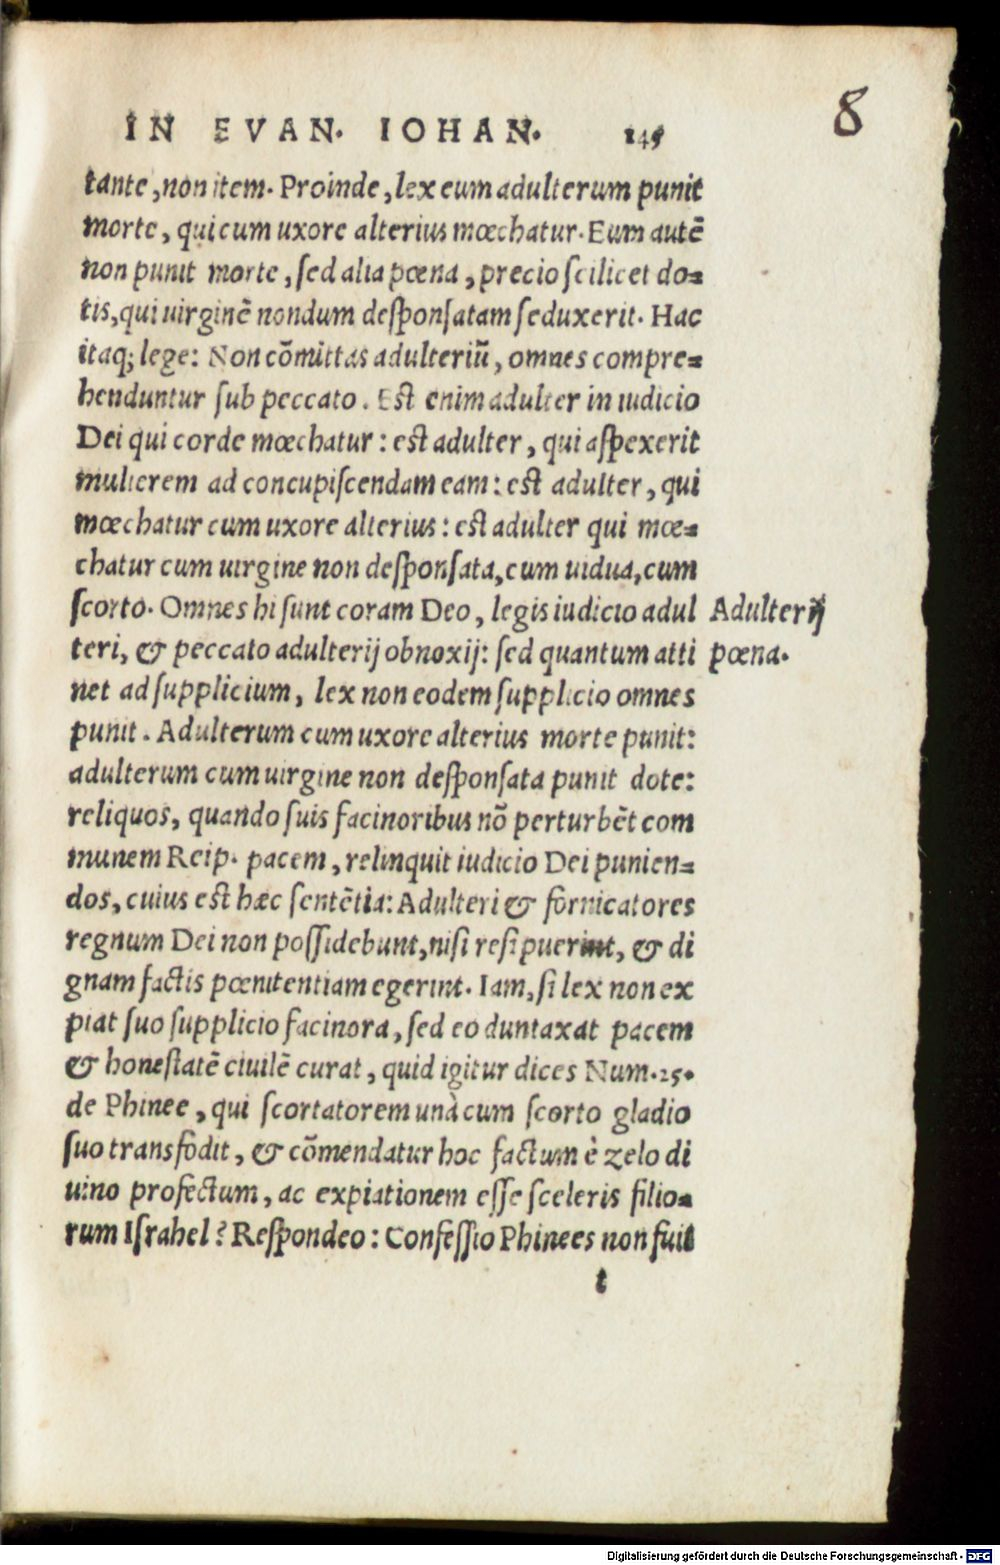 IN EVAN. IOHAN. 145
8
tante, non item. Proinde, lex eum adulterum punit
morte, qui cum uxore alterius mœchatur. Eum autē
non punit morte, sed alia pœna, precio scilicet do=
tis, qui uirginē nondum desponsatam seduxerit. Hac
itaq; lege: Non cōmittas adulteriū, omnes compre=
henduntur sub peccato. Est enim adulter in iudicio
Dei qui corde mœchatur: est adulter, qui aspexerit
mulierem ad concupiscendam eam: est adulter, qui
mœchatur cum uxore alterius: est adulter qui mœ=
chatur cum uirgine non desponsata, cum uidua, cum
scorto. Omnes hi sunt coram Deo, legis iudicio adul
teri, & peccato adulterij obnoxij: sed quantum atti
Adulterij
pœna.
net ad supplicium, lex non eodem supplicio omnes
punit. Adulterum cum uxore alterius morte punit:
adulterum cum uirgine non desponsata punit dote:
reliquos, quando suis facinoribus nō perturbēt com
munem Reip. pacem, relinquit iudicio Dei punien=
dos, cuius est hæc sentētia: Adulteri & fornicatores
regnum Dei non possidebunt, nisi resipuerint, & di
gnam factis pœnitentiam egerint. Iam, si lex non ex
piat suo supplicio facinora, sed eo duntaxat pacem
& honestatē ciuilē curat, quid igitur dices Num. 25.
de Phinee, qui scortatorem unà cum scorto gladio
suo transfodit, & cōmendatur hoc factum è zelo di
uino profectum, ac expiationem esse sceleris filio=
rum Israhel? Respondeo: Confessio Phinees non fuit
t
Digitalisierung gefördert durch die Deutsche Forschungsgemeinschaft - DFG